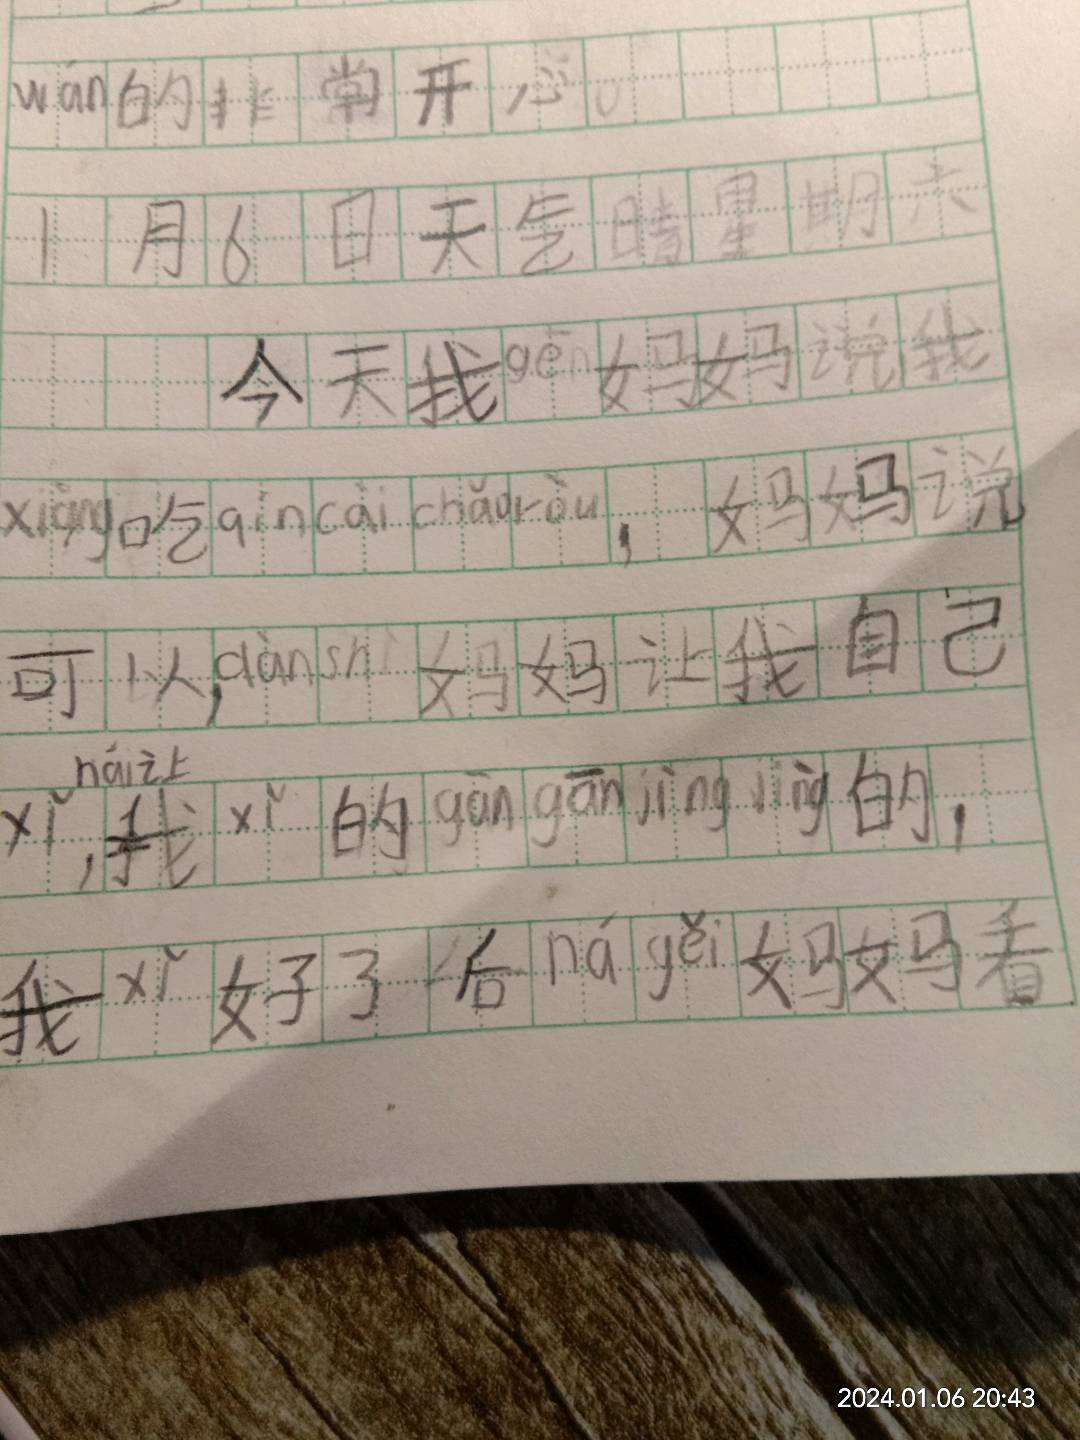 wán的非常开心。
1月6日天气晴星期六
今天我gēn妈妈说我
xiǎng吃qíncài chǎoròu，妈妈说
可以,dàn shì妈妈让我自己
nái让
xǐ,我xǐ的gān gān jìng jìng的,
我xǐ好了后ná gěi妈妈看
2024.01.06 20:43